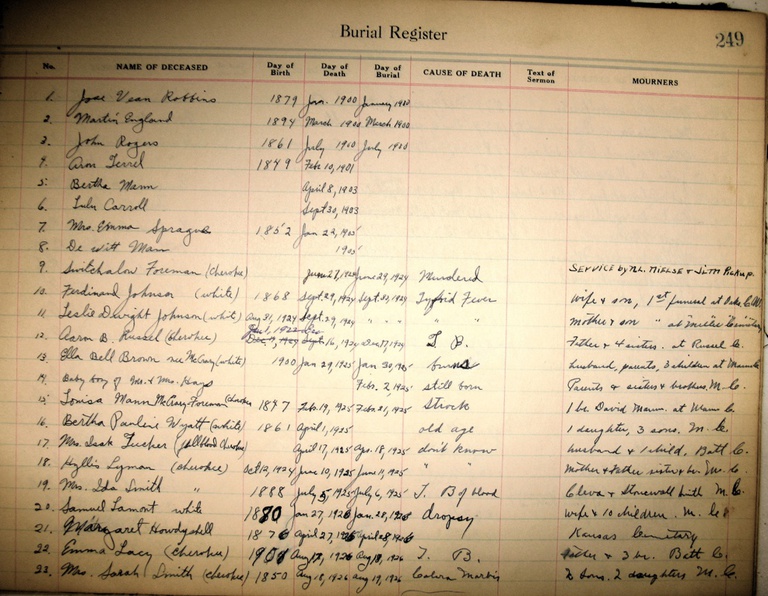 Burial Register 249
No. NAME OF DECEASED Day of Birth Day of Death Day of Burial CAUSE OF DEATH Text of Sermon MOURNERS
1. Jose Vean Robbins 1879 Jan. 1900 January 1900
2. Martin England 1894 March 1900 March 1900
3. John Rogers 1861 July 1900 July 1900
4. Aron Terrel 1849 Feb. 10, 1901
5. Bertha Mann April 8, 1903
6. Lulu Carroll Sept 30, 1903
7. Mrs. Emma Sprague 1852 Jan 22, 1905
8. De witt Mann 1905
9. Switchalow Foreman (cherokee) June 27, 1924 June 29, 1924 Murdered Service by N.L. Nielse + Jim Pickup.
10. Ferdinand Johnson (white) 1868 Sept. 29, 1924 Sept. 30, 1924 Tyfoid Fever wife & son, 1st funeral at
11. Leslie Dwight Johnson (white) Aug 31, 1924 Sept. 29, 1924 " " " " " mother & son " at Cemetery
12. Aaron B. Russel (cherokee) 16, 1924 Dec 17, 1924 T. B. Father & 4 sisters. at Russel C.
13. Ella Bell Brown nee McCrary (white) 1900 Jan 29, 1925 Jan 30, 1925 burns husband, parents, 3 children at
14. Baby boy of Mr. & Mrs. Hays Feb. 2, 1925 still born Parents & sisters & brothers M. C.
15. Louisa Mann McCrary-Foreman (cherokee 1847 Feb. 19, 1925 Feb. 21, 1925 Strock 1 br. David Mann. at Mann C.
16. Bertha Pauline Wyatt (white) 1861 April 1, 1925 old age 1 daughter, 3 sons. M. C.
17. Mrs. Isak Tucker (fullblood cherokee) April 17, 1925 Apr. 18, 1925 don't know husband & 1 child, Batt C.
18. Hyllis Lyman (cherokee) Oct 12, 1924 June 10, 1925 June 11, 1925 " " Mother & Father sister & br. M. C.
19. Mrs. Ida Smith " 1888 July 5, 1925 July 6, 1925 T. B of blood Cleva & Stonewall Smith M. C.
20. Samuel Lamont white 1880 Jan 27, 1926 Jan. 28, 1926 dropsy wife & 10 children. M. C.
21. Margaret Howdyshell 1876 April 27, 1926 April 28, 1926 Kansas Cemetary
22. Emma Lacy (cherokee) 1901 Aug 17, 1926 Aug 18, 1926 T. B. Father & 3 br. Batt C.
23. Mrs. Sarah Smith (cherokee) 1850 Aug 18, 1926 Aug 19, 1926 Colera Morbis 2 sons. 2 daughters M. C.